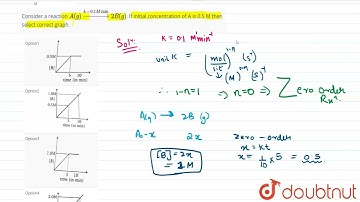 Consider a reaction A(g) k = 0.1 M min 2B(g). If initial concentration of A is 0.5 M then
select correct graph.
Option1
0.5M
[B]
5 10
time (in min)
Option2
1.0M
[B]
5 10
time (in min)
Option3
1.0M
[B]
5 10
time (in min)
Option4
Solⁿ.
K = 0.1 M¹min⁻¹
unit K = (mol/lit)^1-n (s⁻¹)
→ (M)^1-n (s)⁻¹
∴ 1-n=1 → n=0 ⇒ Zero order
Rxⁿ.
A(g) → 2B (g)
A₀-x 2x
[B] = 2x
= 1M
Zero-order
x = kt
x = 1/10 × 5 = 0.5
doubtnut